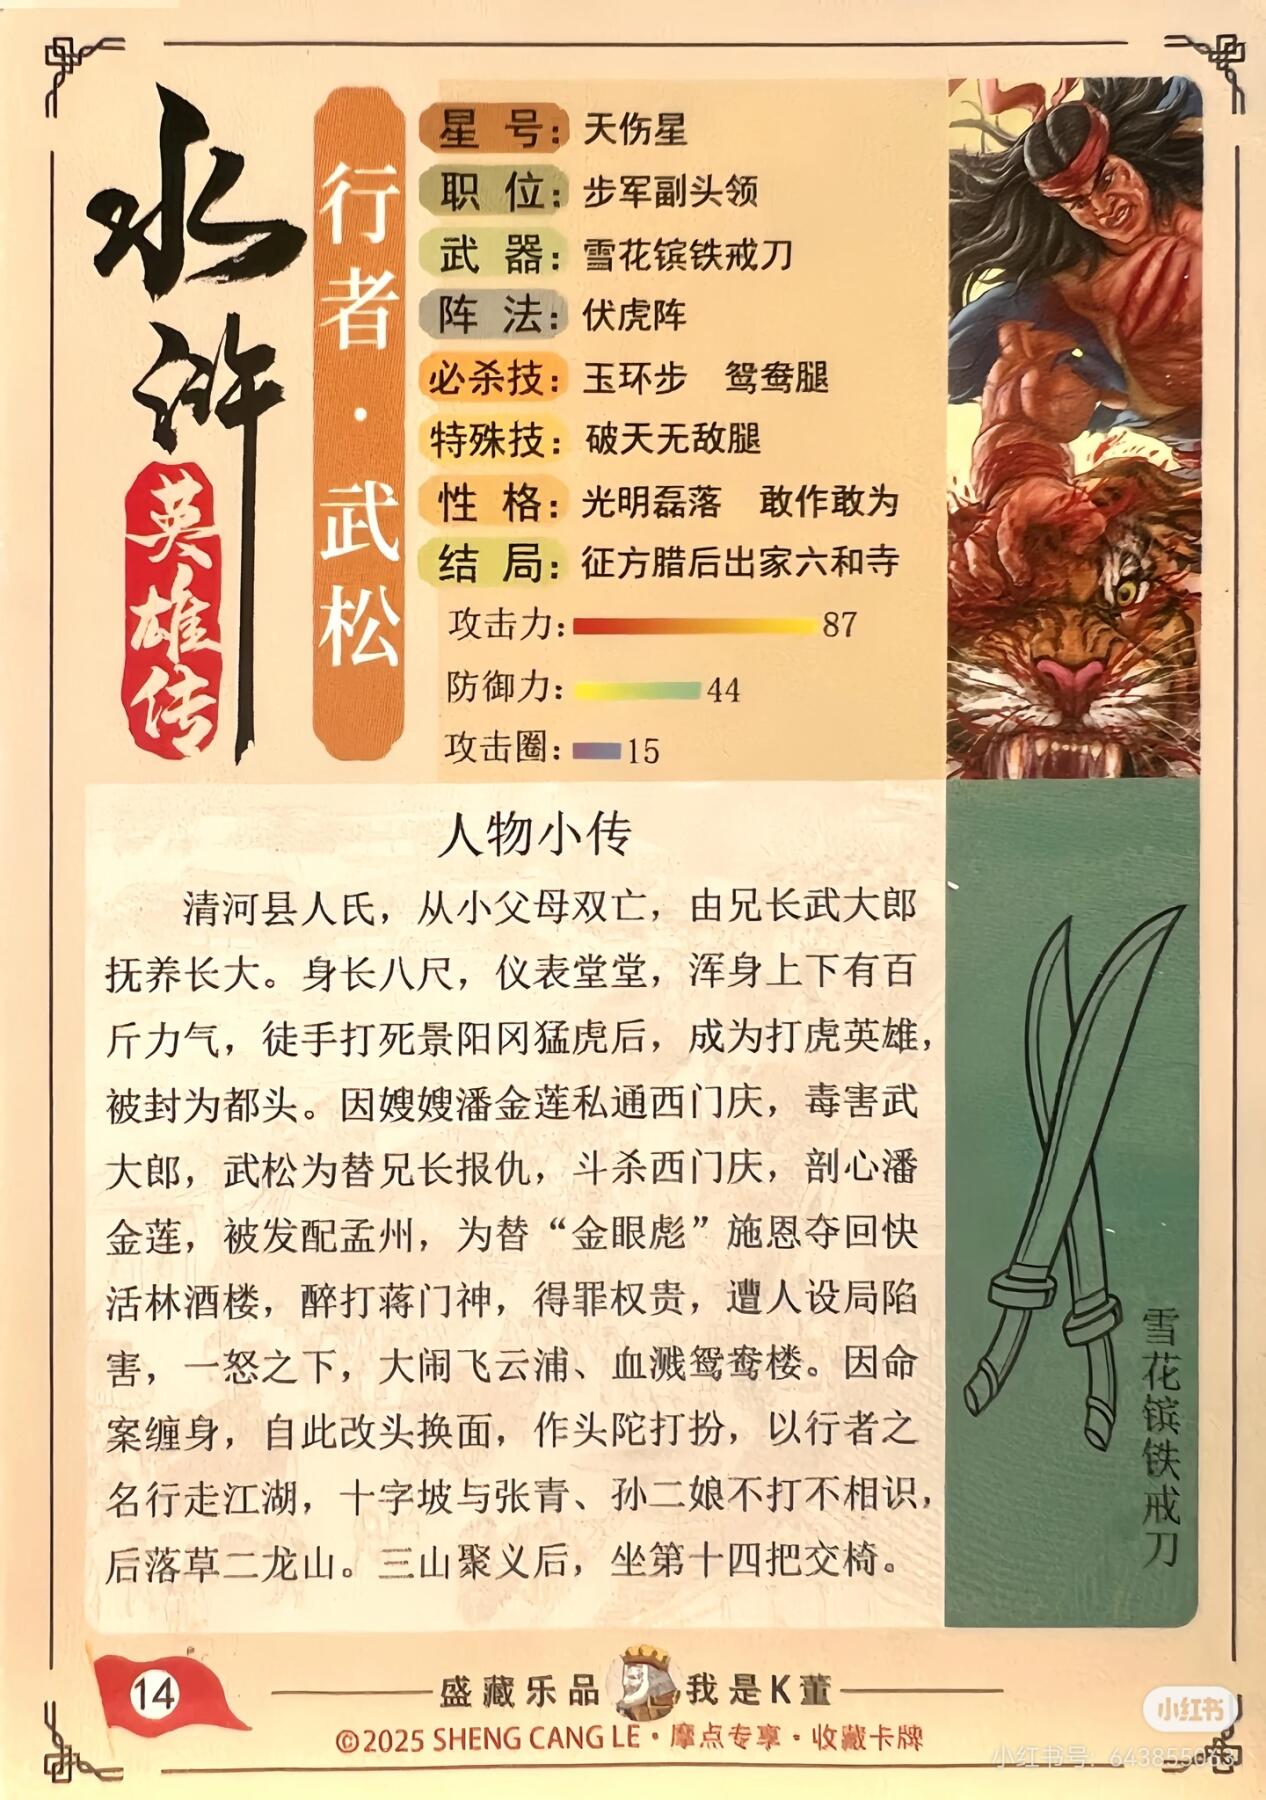 水浒
英雄传
行者·武松
星号：天伤星
职位：步军副头领
武器：雪花镔铁戒刀
阵法：伏虎阵
必杀技：玉环步 鸳鸯腿
特殊技：破天无敌腿
性格：光明磊落 敢作敢为
结局：征方腊后出家六和寺
攻击力：87
防御力：44
攻击圈：15
人物小传
清河县人氏，从小父母双亡，由兄长武大郎
抚养长大。身长八尺，仪表堂堂，浑身上下有百
斤力气，徒手打死景阳冈猛虎后，成为打虎英雄，
被封为都头。因嫂嫂潘金莲私通西门庆，毒害武
大郎，武松为替兄长报仇，斗杀西门庆，剖心潘
金莲，被发配孟州，为替“金眼彪”施恩夺回快
活林酒楼，醉打蒋门神，得罪权贵，遭人设局陷
害，一怒之下，大闹飞云浦、血溅鸳鸯楼。因命
案缠身，自此改头换面，作头陀打扮，以行者之
名行走江湖，十字坡与张青、孙二娘不打不相识，
后落草二龙山。三山聚义后，坐第十四把交椅。
雪花镔铁戒刀
14
盛藏乐品 我是K董
©2025 SHENG CANG LE·摩点专享·收藏卡牌
小红书
小红书号：